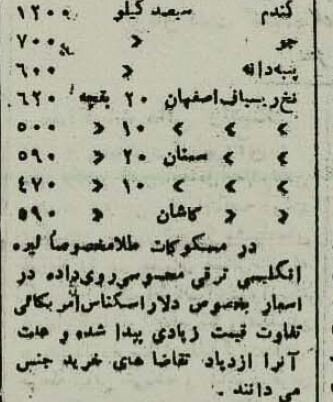 گندم سیصد کیلو ۱۲۰۰
جو » ۷۰۰
پنبه‌دانه » ۶۰۰
نخ ریسباف اصفهان ۲۰ بقچه ۶۲۰
» » » ۱۰ » ۵۰۰
» » سمنان ۲۰ » ۵۹۰
» » » ۱۰ » ۴۷۰
» » کاشان » ۵۹۰
در مسکوکات طلا مخصوصاً لیره
انگلیسی ترقی محسوسی روی داده در
اسعار بخصوص دلار اسکناس امریکائی
تفاوت قیمت زیادی پیدا شده و علت
آنرا ازدیاد تقاضا های خرید جنس
می دانند .